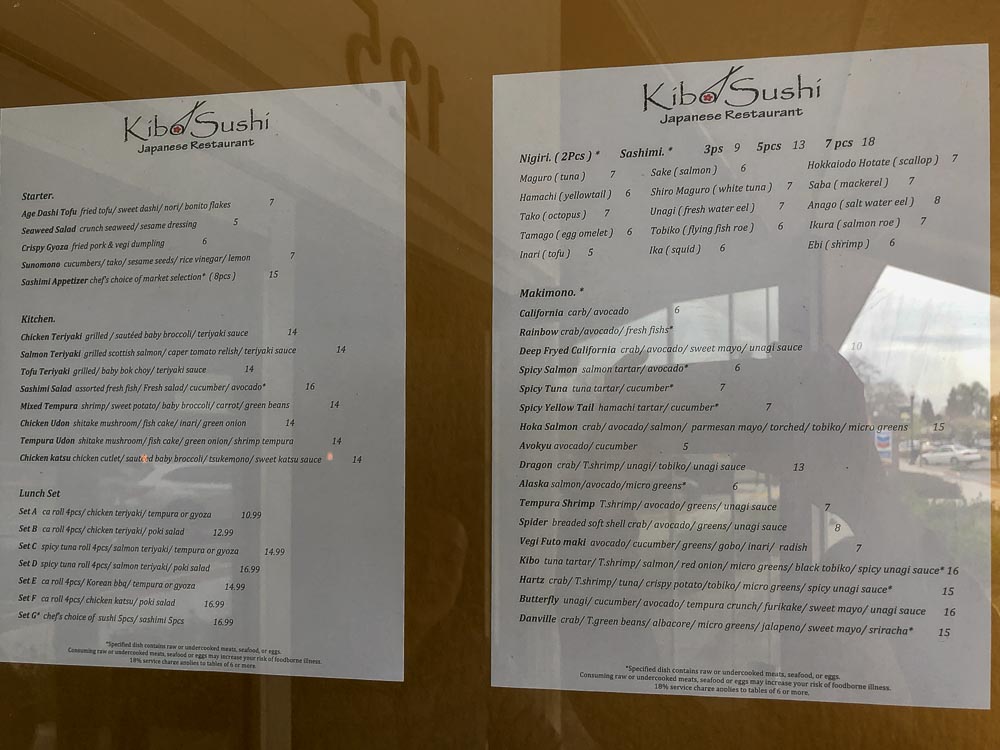 Kibo Sushi
Japanese Restaurant
Starter.
Age Dashi Tofu fried tofu/ sweet dashi/ nori/ bonito flakes 7
Seaweed Salad crunch seaweed/ sesame dressing 5
Crispy Gyoza fried pork & vegi dumpling 6
Sunomono cucumbers/ tako/ sesame seeds/ rice vinegar/ lemon 7
Sashimi Appetizer chef's choice of market selection* ( 8pcs ) 15
Kitchen.
Chicken Teriyaki grilled / sautéed baby broccoli/ teriyaki sauce 14
Salmon Teriyaki grilled scottish salmon/ caper tomato relish/ teriyaki sauce 14
Tofu Teriyaki grilled/ baby bok choy/ teriyaki sauce 14
Sashimi Salad assorted fresh fish/ Fresh salad/ cucumber/ avocado* 16
Mixed Tempura shrimp/ sweet potato/ baby broccoli/ carrot/ green beans 14
Chicken Udon shitake mushroom/ fish cake/ inari/ green onion 14
Tempura Udon shitake mushroom/ fish cake/ green onion/ shrimp tempura 14
Chicken katsu chicken cutlet/ sautéed baby broccoli/ tsukemono/ sweet katsu sauce 14
Lunch Set
Set A ca roll 4pcs/ chicken teriyaki/ tempura or gyoza 10.99
Set B ca roll 4pcs/ chicken teriyaki/ poki salad 12.99
Set C spicy tuna roll 4pcs/ salmon teriyaki/ tempura or gyoza 14.99
Set D spicy tuna roll 4pcs/ salmon teriyaki/ poki salad 16.99
Set E ca roll 4pcs/ Korean bbq/ tempura or gyoza 14.99
Set F ca roll 4pcs/ chicken katsu/ poki salad 16.99
Set G* chef's choice of sushi 5pcs/ sashimi 5pcs 16.99
*Specified dish contains raw or undercooked meats, seafood, or eggs.
Consuming raw or undercooked meats, seafood or eggs may increase your risk of foodborne illness.
18% service charge applies to tables of 6 or more.
Kibo Sushi
Japanese Restaurant
Nigiri. ( 2Pcs ) * Sashimi. * 3ps 9 5pcs 13 7 pcs 18
Maguro ( tuna ) 7 Sake ( salmon ) 6 Hokkaiodo Hotate ( scallop ) 7
Hamachi ( yellowtail ) 6 Shiro Maguro ( white tuna ) 7 Saba ( mackerel ) 7
Tako ( octopus ) 7 Unagi ( fresh water eel ) 7 Anago ( salt water eel ) 8
Tamago ( egg omelet ) 6 Tobiko ( flying fish roe ) 6 Ikura ( salmon roe ) 7
Inari ( tofu ) 5 Ika ( squid ) 6 Ebi ( shrimp ) 6
Makimono. *
California carb/ avocado 6
Rainbow crab/avocado/ fresh fishs*
Deep Fryed California crab/ avocado/ sweet mayo/ unagi sauce 10
Spicy Salmon salmon tartar/ avocado* 6
Spicy Tuna tuna tartar/ cucumber* 7
Spicy Yellow Tail hamachi tartar/ cucumber* 7
Hoka Salmon crab/ avocado/ salmon/ parmesan mayo/ torched/ tobiko/ micro greens 15
Avokyu avocado/ cucumber 5
Dragon crab/ T.shrimp/ unagi/ tobiko/ unagi sauce 13
Alaska salmon/avocado/micro greens* 6
Tempura Shrimp T.shrimp/ avocado/ greens/ unagi sauce 7
Spider breaded soft shell crab/ avocado/ greens/ unagi sauce 8
Vegi Futo maki avocado/ cucumber/ greens/ gobo/ inari/ radish 7
Kibo tuna tartar/ T.shrimp/ salmon/ red onion/ micro greens/ black tobiko/ spicy unagi sauce* 16
Hartz crab/ T.shrimp/ tuna/ crispy potato/tobiko/ micro greens/ spicy unagi sauce* 15
Butterfly unagi/ cucumber/ avocado/ tempura crunch/ furikake/ sweet mayo/ unagi sauce 16
Danville crab/ T.green beans/ albacore/ micro greens/ jalapeno/ sweet mayo/ sriracha* 15
*Specified dish contains raw or undercooked meats, seafood, or eggs.
Consuming raw or undercooked meats, seafood or eggs may increase your risk of foodborne illness.
18% service charge applies to tables of 6 or more.